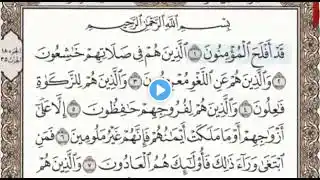 بِسْمِ ٱللَّهِ ٱلرَّحْمَٰنِ ٱلرَّحِيمِ
الجزء ١٨
الحزب ٣٥
قَدْ أَفْلَحَ ٱلْمُؤْمِنُونَ ١ ٱلَّذِينَ هُمْ فِى صَلَاتِهِمْ خَٰشِعُونَ
٢ وَٱلَّذِينَ هُمْ عَنِ ٱللَّغْوِ مُعْرِضُونَ ٣ وَٱلَّذِينَ هُمْ لِلزَّكَوٰةِ
فَٰعِلُونَ ٤ وَٱلَّذِينَ هُمْ لِفُرُوجِهِمْ حَٰفِظُونَ ٥ إِلَّا عَلَىٰٓ
أَزْوَٰجِهِمْ أَوْ مَا مَلَكَتْ أَيْمَٰنُهُمْ فَإِنَّهُمْ غَيْرُ مَلُومِينَ ٦ فَمَنِ
ٱبْتَغَىٰ وَرَآءَ ذَٰلِكَ فَأُو۟لَٰٓئِكَ هُمُ ٱلْعَادُونَ ٧ وَٱلَّذِينَ هُمْ